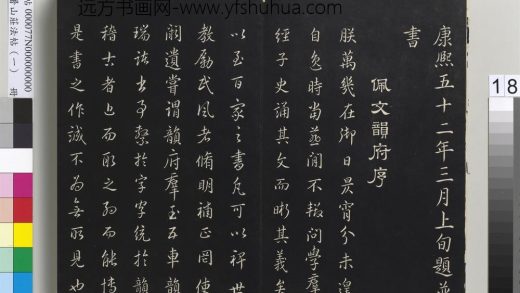 远方书画网- www.yfshuhua.com
康熙五十二年三月上旬題並
書
佩文韻府序
朕萬幾在御日昃宵分未遑
自逸時當燕閒不輟問學羣
經子史誦其文而晰其義矣
以至百家之書凡可以裨世
教勵民風者脩明補正罔使
闕遺嘗謂韻府羣玉五車韻
瑞諸書事繫於字字統於韻
稽古者近而取之約而能博
是書之作誠不為無所見也
帖 000077N00000000
山莊法帖（一） 冊
18